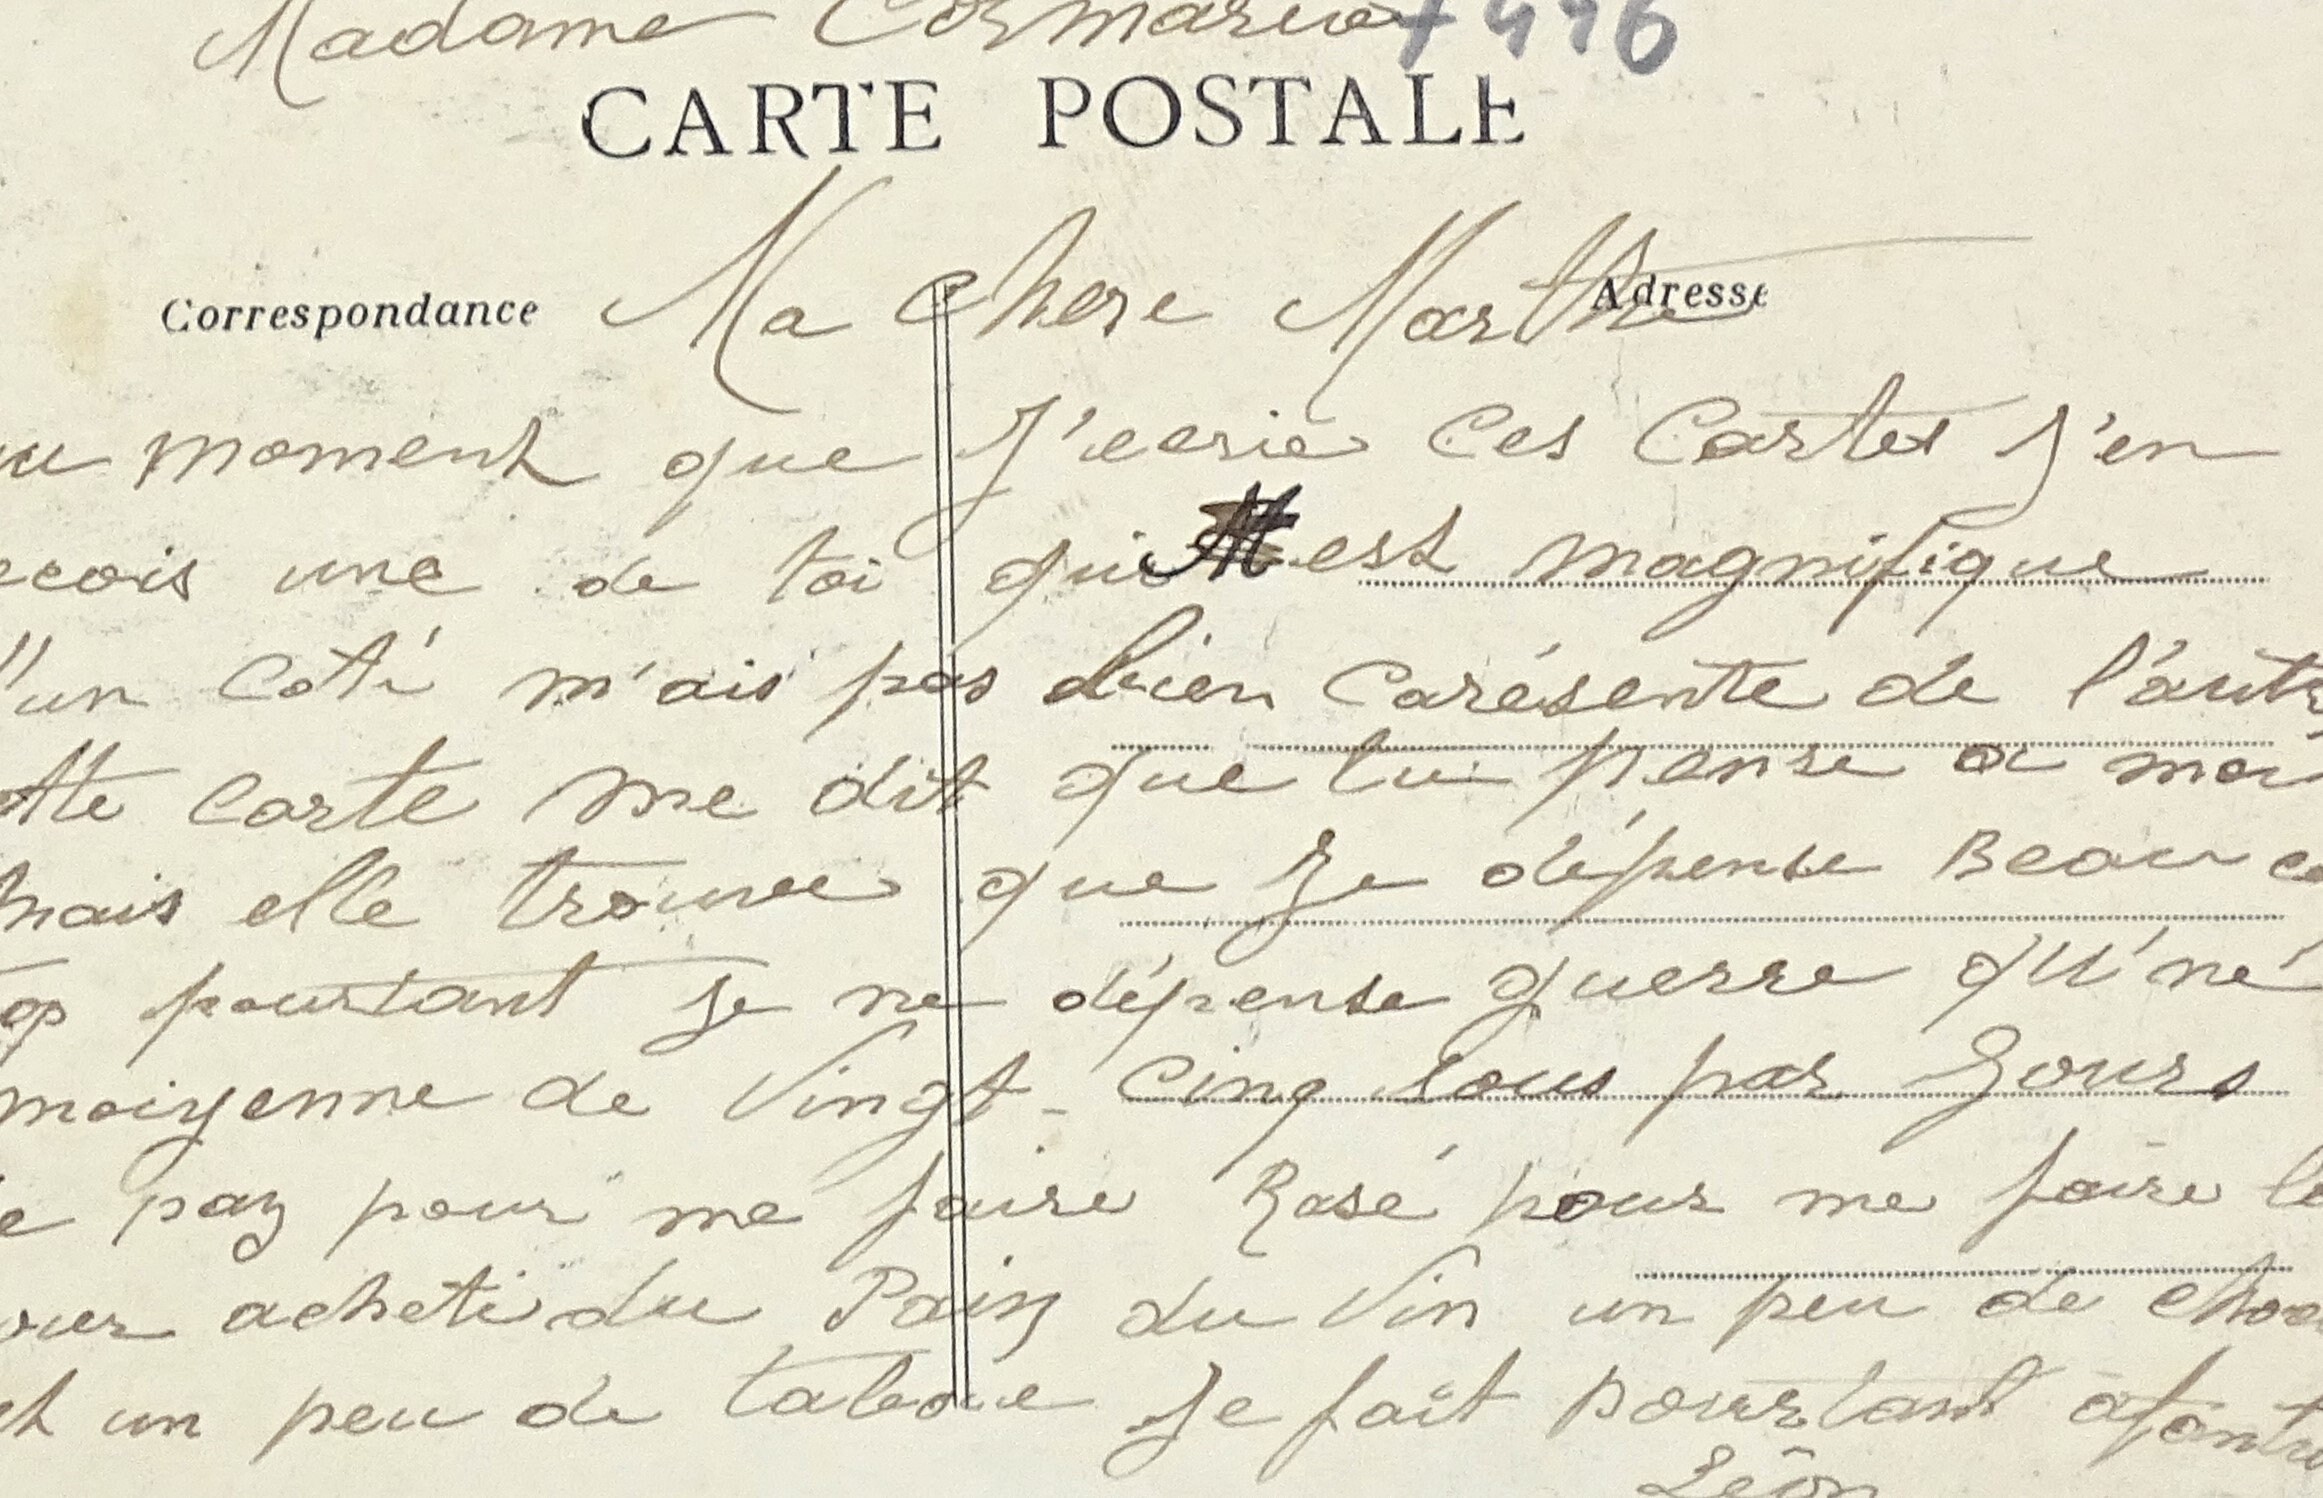 Madame Cormario + 446
CARTE POSTALE
Correspondance Ma chere Marthe Adresse
au moment que J'ecrie Ces Cartes J'en
ecois une de toi qui est magnifique
d'un Coté m'ais pas bien Carésente de l'autr
ette Carte me dit que tu pense a moi
mais elle trouve que Je dépense Beau co
op pourtant Je ne dépense guerre qu'né
moiyenne de Vingt-Cinq sous par Jours
e pay pour me faire Rasé pour me faire le
our acheté du Pain du Vin un peu de choc
et un peu de tabac Je fait pourtant
Léon